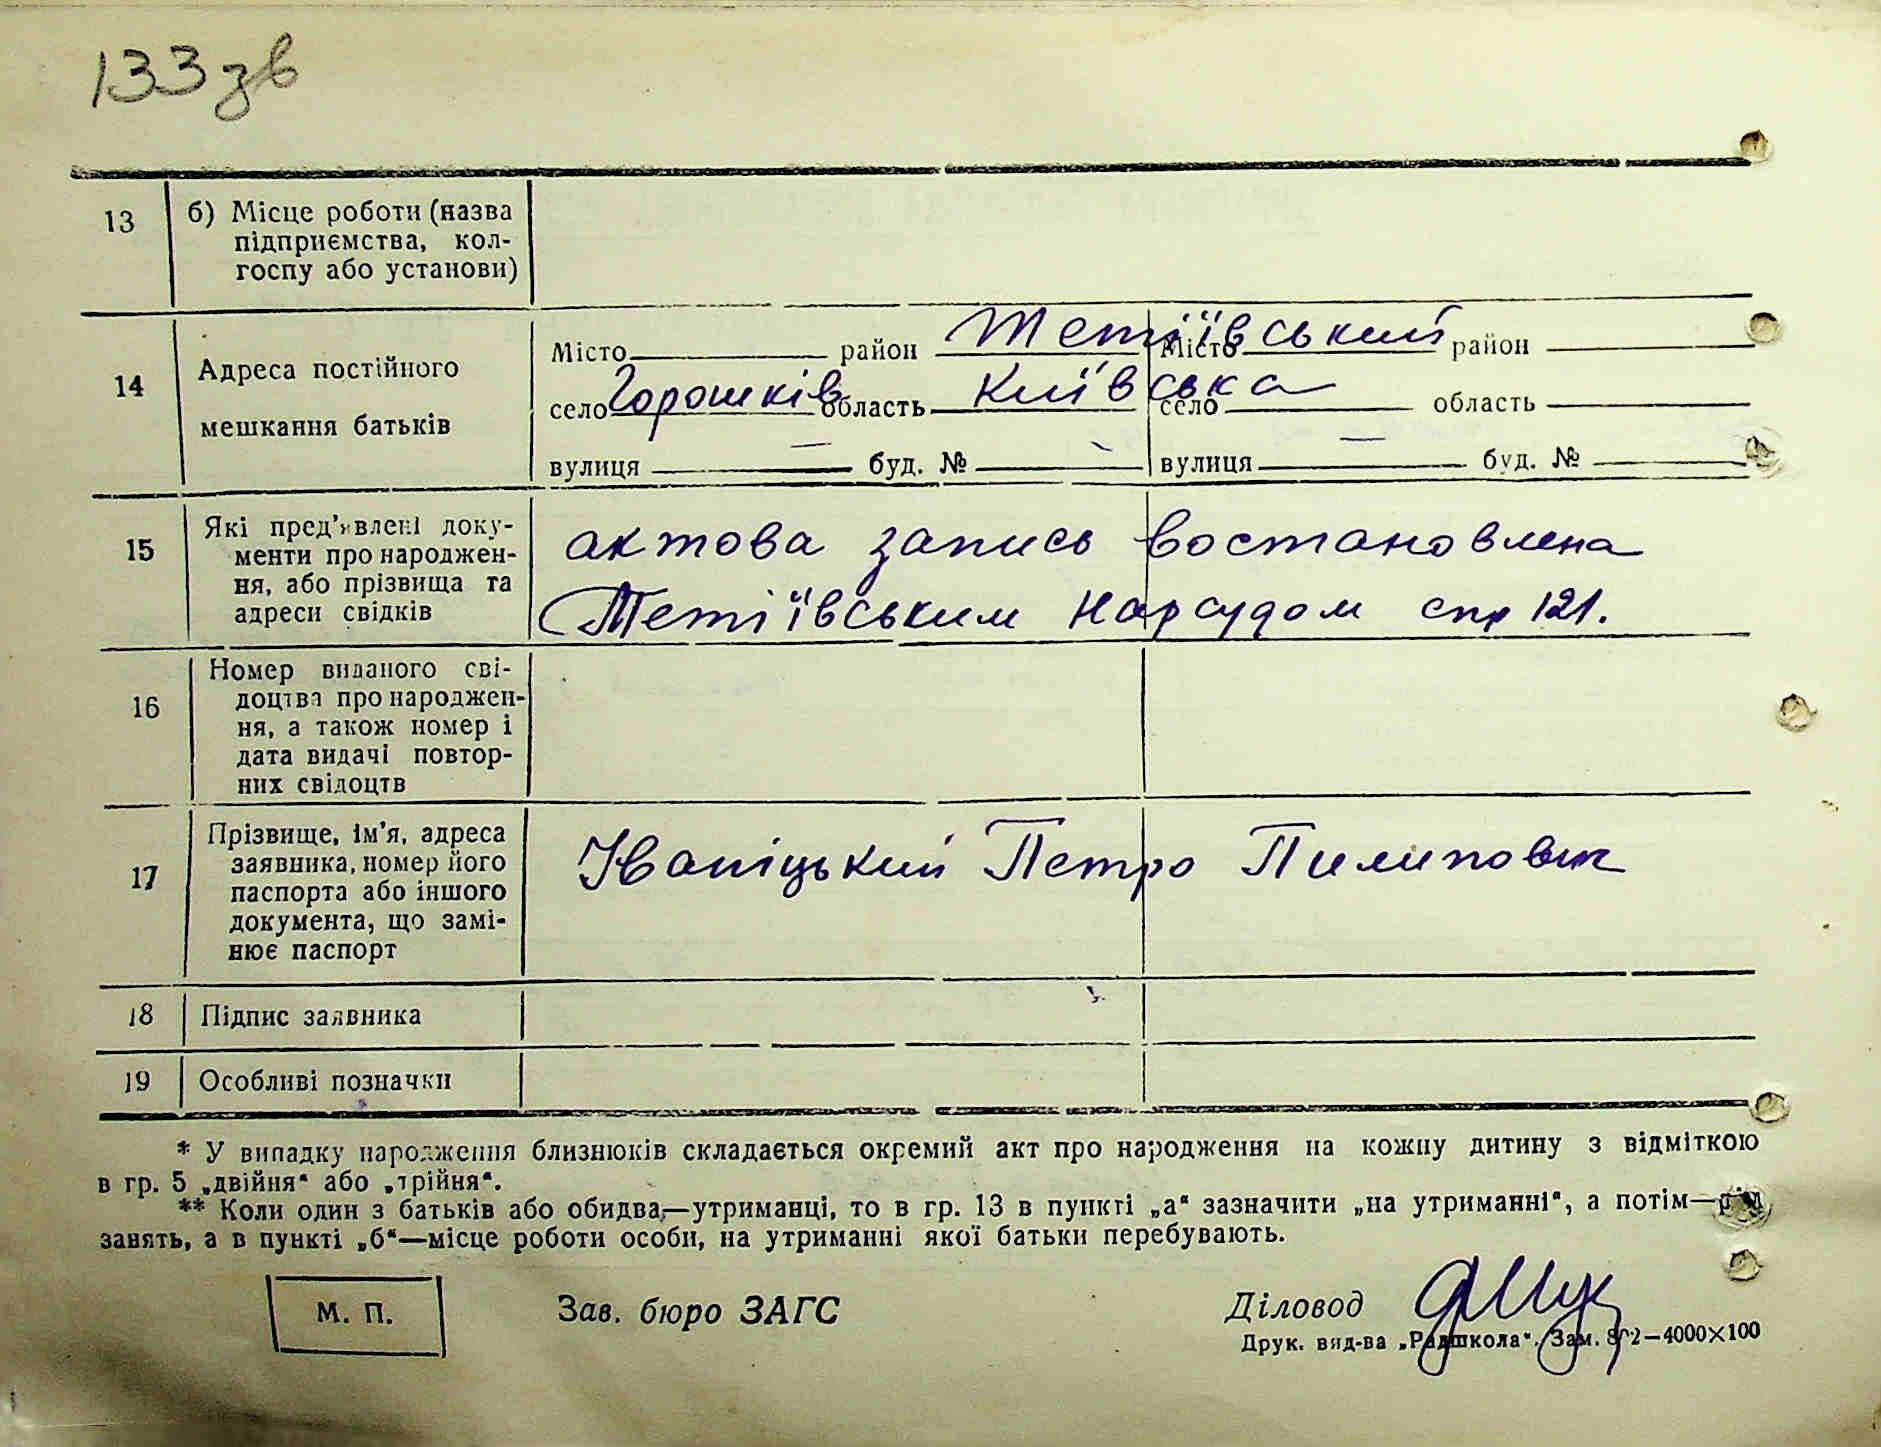 133 зв
13 б) Місце роботи (назва
підприємства, кол-
госпу або установи)
14 Адреса постійного
мешкання батьків
Місто район Тетіївський Місто район
село Горошків область Київська село область
вулиця — буд. № вулиця — буд. №
15 Які пред'явлені доку-
менти про народжен-
ня, або прізвища та
адреси свідків
актова запись востановлена
Тетіївським Нарсудом спр 121.
16 Номер виданого сві-
доцтва про народжен-
ня, а також номер і
дата видачі повтор-
них свідоцтв
17 Прізвище, ім'я, адреса
заявника, номер його
паспорта або іншого
документа, що замі-
нює паспорт
Іваніцький Петро Пилипович
18 Підпис заявника
19 Особливі позначки
* У випадку народження близнюків складається окремий акт про народження на кожну дитину з відміткою
в гр. 5 „двійня“ або „трійня“.
** Коли один з батьків або обидва,—утриманці, то в гр. 13 в пункті „а“ зазначити „на утриманні“, а потім—рід
занять, а в пункті „б“—місце роботи особи, на утриманні якої батьки перебувають.
М. П. Зав. бюро ЗАГС Діловод
Друк. вид-ва „Радшкола“. Зам. 802—4000×100